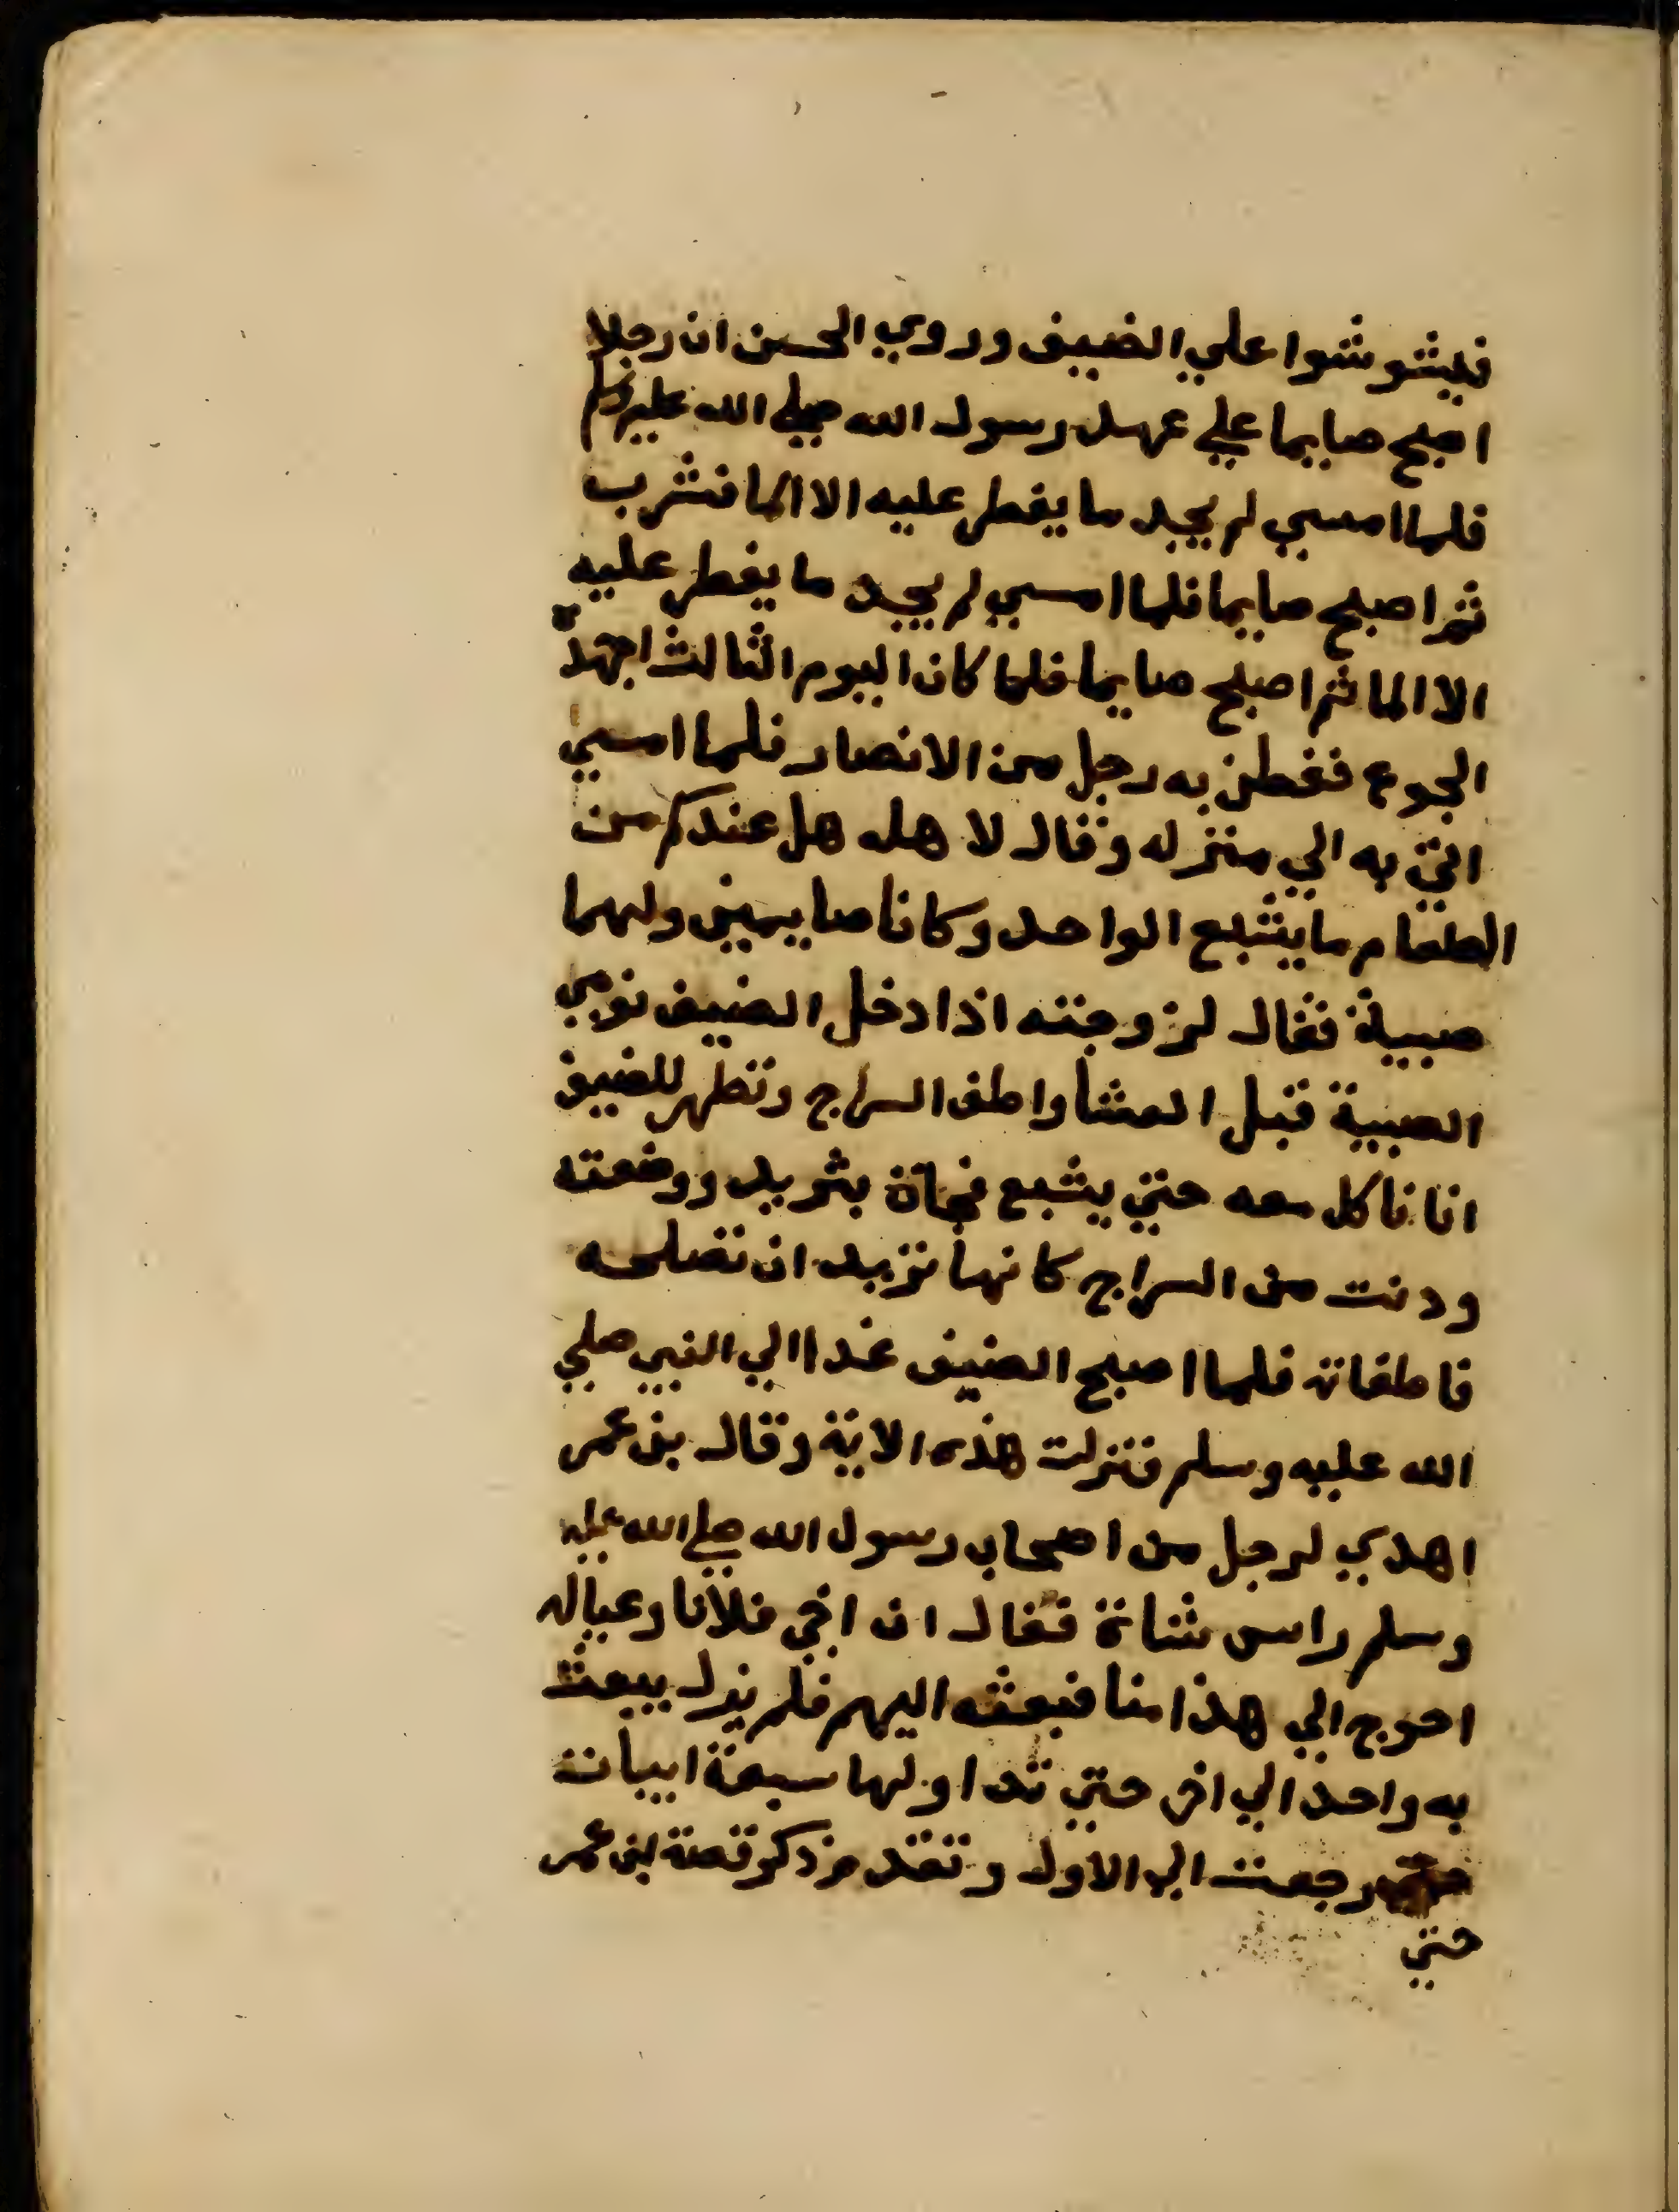 فيشوشوا علي الضيف وروي الحسن ان رجلا
اصبح صايما علي عهد رسول الله صلي الله عليه وسلم
فلما امسي لم يجد ما يفطر عليه الا الما فشرب
ثم اصبح صايما فلما امسي لم يجد ما يفطر عليه
الا الما ثم اصبح صايما فلما كان اليوم الثالث اجهده
الجوع ففطن به رجل من الانصار فلما امسي
اتي به الي منزله وقال لاهله هل عندكم من
الطعام ما يشبع الواحد وكانا صايمين ولهما
صبية فقال لزوجته اذا دخل الضيف نومي
الصبية قبل العشا واطف السراج وتظهر للضيف
انا ناكل معه حتي يشبع فجاة بثريد ووضعته
ودنت من السراج كانها تزيد ان تصلحه
فاطفاته فلما اصبح الضيف غدا الي النبي صلي
الله عليه وسلم فنزلت هذه الاية وقال بن عمر
اهدي لرجل من اصحاب رسول الله صلي الله عليه
وسلم راس شاة فقال ان اخي فلانا وعياله
احوج الي هذا منا فبعثه اليهم فلم يزل يبعث
به واحد الي اخر حتي تداولها سبعة ابيات
حتي رجعت الي الاول وتقدم ذكر قصة بن عمر
حتي